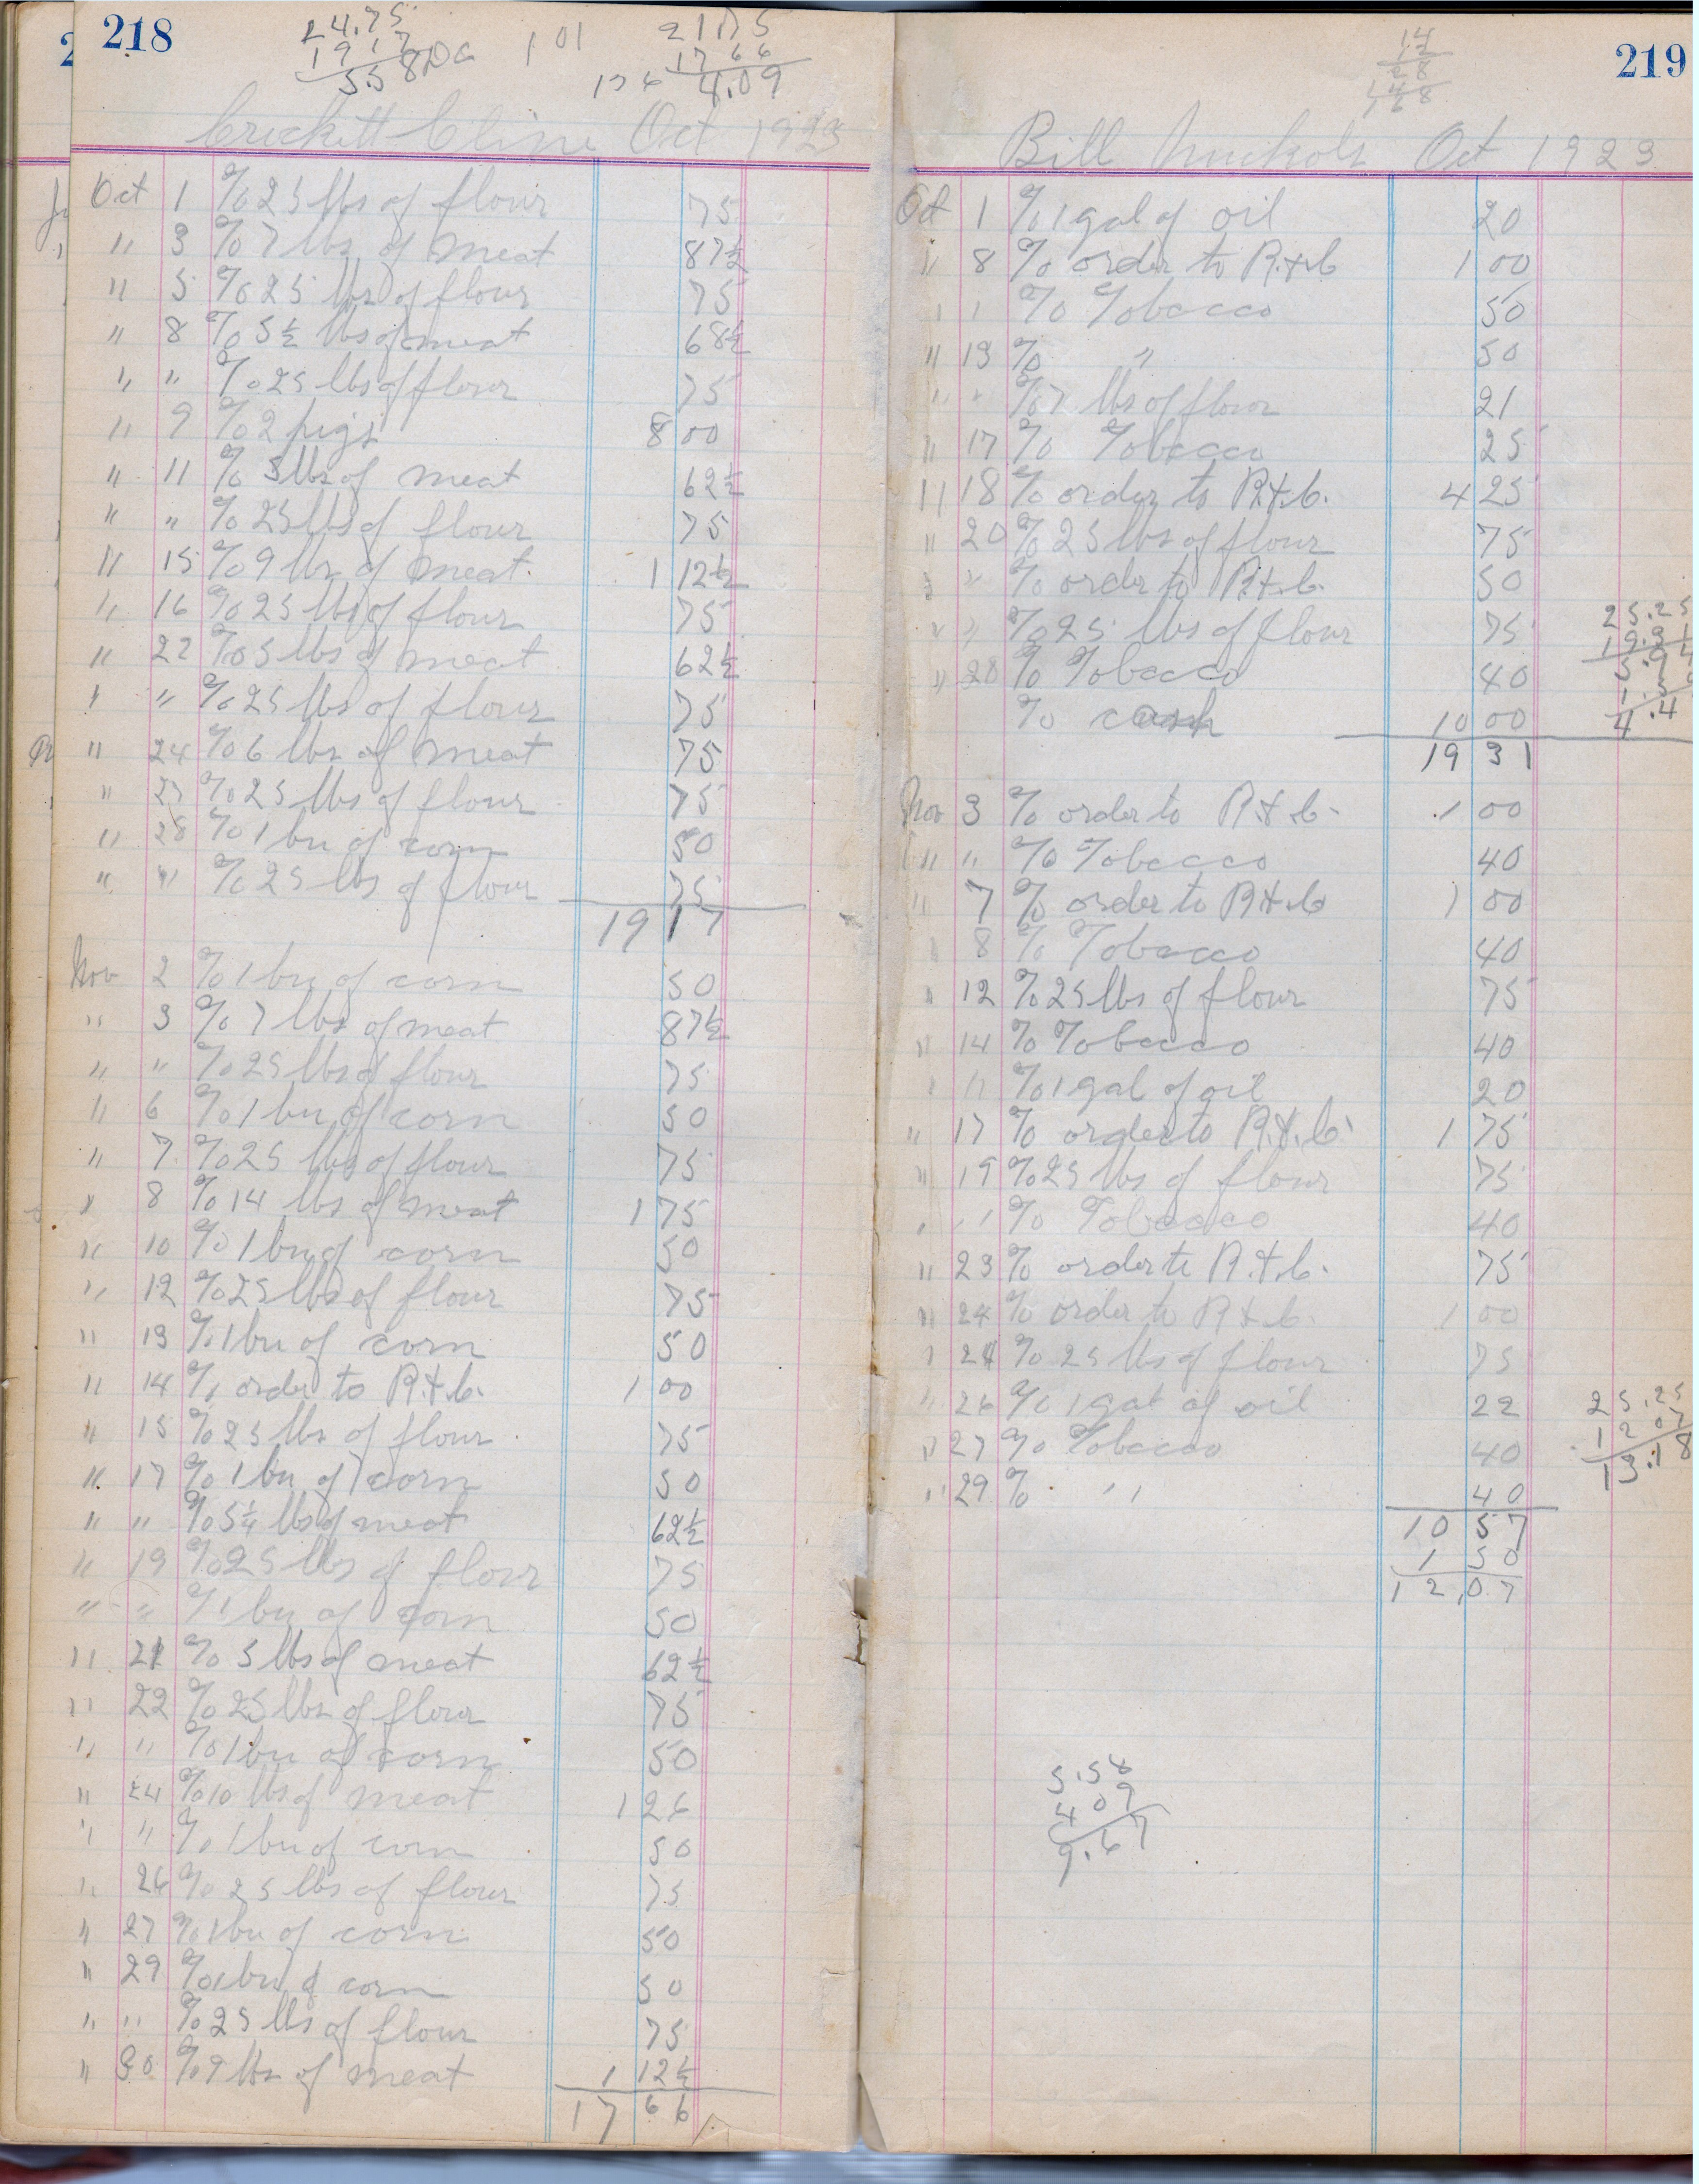 218
24.75
19 17
5.58
1 01
21.75
17 66
4.09
Crickett Cline Oct 1923
Oct 1 % 25 lbs of flour 75
" 3 % 7 lbs of meat 87½
" 5 % 25 lbs of flour 75
" 8 % 5½ lbs of meat 68½
" " % 25 lbs of flour 75
" 9 % 2 pigs 8 00
" 11 % 5 lbs of meat 62½
" " % 25 lbs of flour 75
" 15 % 9 lbs of meat. 1 12½
" 16 % 25 lbs of flour 75
" 22 % 5 lbs of meat 62½
" " % 25 lbs of flour 75
" 24 % 6 lbs of meat 75
" 27 % 25 lbs of flour 75
" 28 % 1 bu of corn 50
" " % 25 lbs of flour 75
19 17
Nov 2 % 1 bu of corn 50
" 3 % 7 lbs of meat 87½
" " % 25 lbs of flour 75
" 6 % 1 bu of corn 50
" 7 % 25 lbs of flour 75
" 8 % 14 lbs of meat 1 75
" 10 % 1 bu of corn 50
" 12 % 25 lbs of flour 75
" 13 % 1 bu of corn 50
" 14 % order to R.&.C. 1 00
" 15 % 25 lbs of flour 75
" 17 % 1 bu of corn 50
" " % 5¼ lbs of meat 62½
" 19 % 25 lbs of flour 75
" " % 1 bu of corn 50
" 21 % 5 lbs of meat 62½
" 22 % 25 lbs of flour 75
" " % 1 bu of corn 50
" 24 % 10 lbs of meat 1 26
" " % 1 bu of corn 50
" 26 % 25 lbs of flour 75
" 27 % 1 bu of corn 50
" 29 % 1 bu of corn 50
" " % 25 lbs of flour 75
" 30 % 9 lbs of meat 1 12½
17 66
219
14
12
28
14
168
Bill Nuckols Oct 1923
Oct 1 % 1 gal of oil 20
" 8 % order to R.&.C 1 00
" % Tobacco 50
" 13 % " 50
" " % 7 lbs of flour 21
" 17 % Tobacco 25
" 18 % order to R.&.C. 4 25
" 20 % 25 lbs of flour 75
" " % order to R.&.C. 50
" " % 25 lbs of flour 75
" 28 % Tobacco 40
% cash 10 00
19 31
25.25
19.31
5.94
1.50
4.4
Nov 3 % order to R.&.C. 1 00
" " % Tobacco 40
" 7 % order to R.&.C 1 00
" 8 % Tobacco 40
" 12 % 25 lbs of flour 75
" 14 % Tobacco 40
" " % 1 gal of oil 20
" 17 % order to R.&.C. 1 75
" 19 % 25 lbs of flour 75
" " % Tobacco 40
" 23 % order to R.&.C. 75
" 24 % order to R.&.C. 1 00
" 24 % 25 lbs of flour 75
" 26 % 1 gal of oil 22
" 27 % Tobacco 40
" 29 % " 40
10 57
1 50
12,07
25.25
12 07
13.18
5.58
4 09
9.67